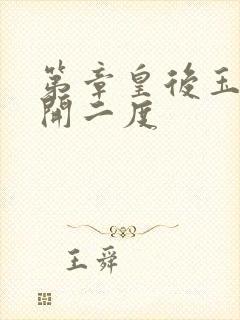 第章皇後玉
開二度
王舜